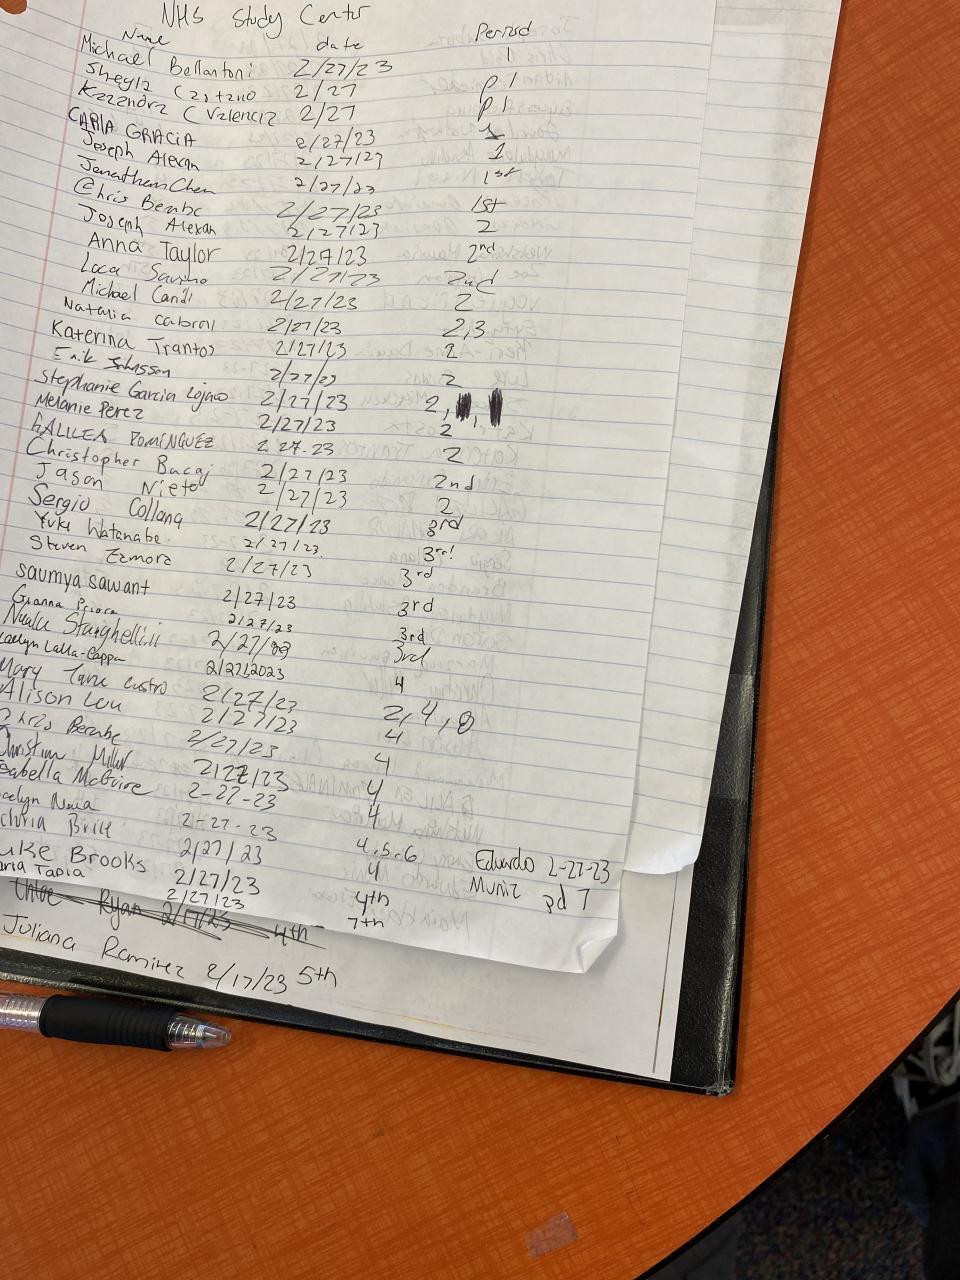 NHS Study Center
Name date Period
Michael Bellantoni 2/27/23 1
Sheyla Castano 2/27 P 1
Kazandra C Valencia 2/27 P 1
CARLA GRACIA 2/27/23 1
Joseph Alexan 2/27/23 1
Jonathan Chen 2/27/23 1st
Chris Berabe 2/27/23 1st
Joseph Alexan 2/27/23 2
Anna Taylor 2/27/23 2nd
Luca 2/27/23 2nd
Michael Candi 2/27/23 2
Natalia Cabral 2/27/23 2,3
Katerina Trantos 2/27/23 2
Erik Johnson 2/27/23 2
Stephanie Garcia Lojano 2/27/23 2,
Melanie Perez 2/27/23 2
GALILEA DOMINGUEZ 2.27.23 2
Christopher Bucaj 2/27/23 2nd
Jason Nieto 2/27/23 2
Sergio Collana 2/27/23 3rd
Yuki Watanabe 2/27/23 3rd
Steven Zamora 2/27/23 3rd
saumya sawant 2/27/23 3rd
Gianna 2/27/23 3rd
2/27/23 3rd
Lalla-Cappa 2/27/2023 4
Mary Jane Castro 2/27/23 2,4,8
Alison Lou 2/27/23 4
Chris Berabe 2/27/23 4
Christian Millar 2/27/23 4
sabella McGuire 2-27-23 4
ocelyn Naula 2-27-23 4,5,6
ctoria Brill 2/27/23 4
uke Brooks 2/27/23 4th
aria Tapia 2/27/23 7th
Eduardo 2-27-23
Muniz pd 7
Chloe Ryan 2/17/23 4th
Juliana Ramirez 2/17/23 5th